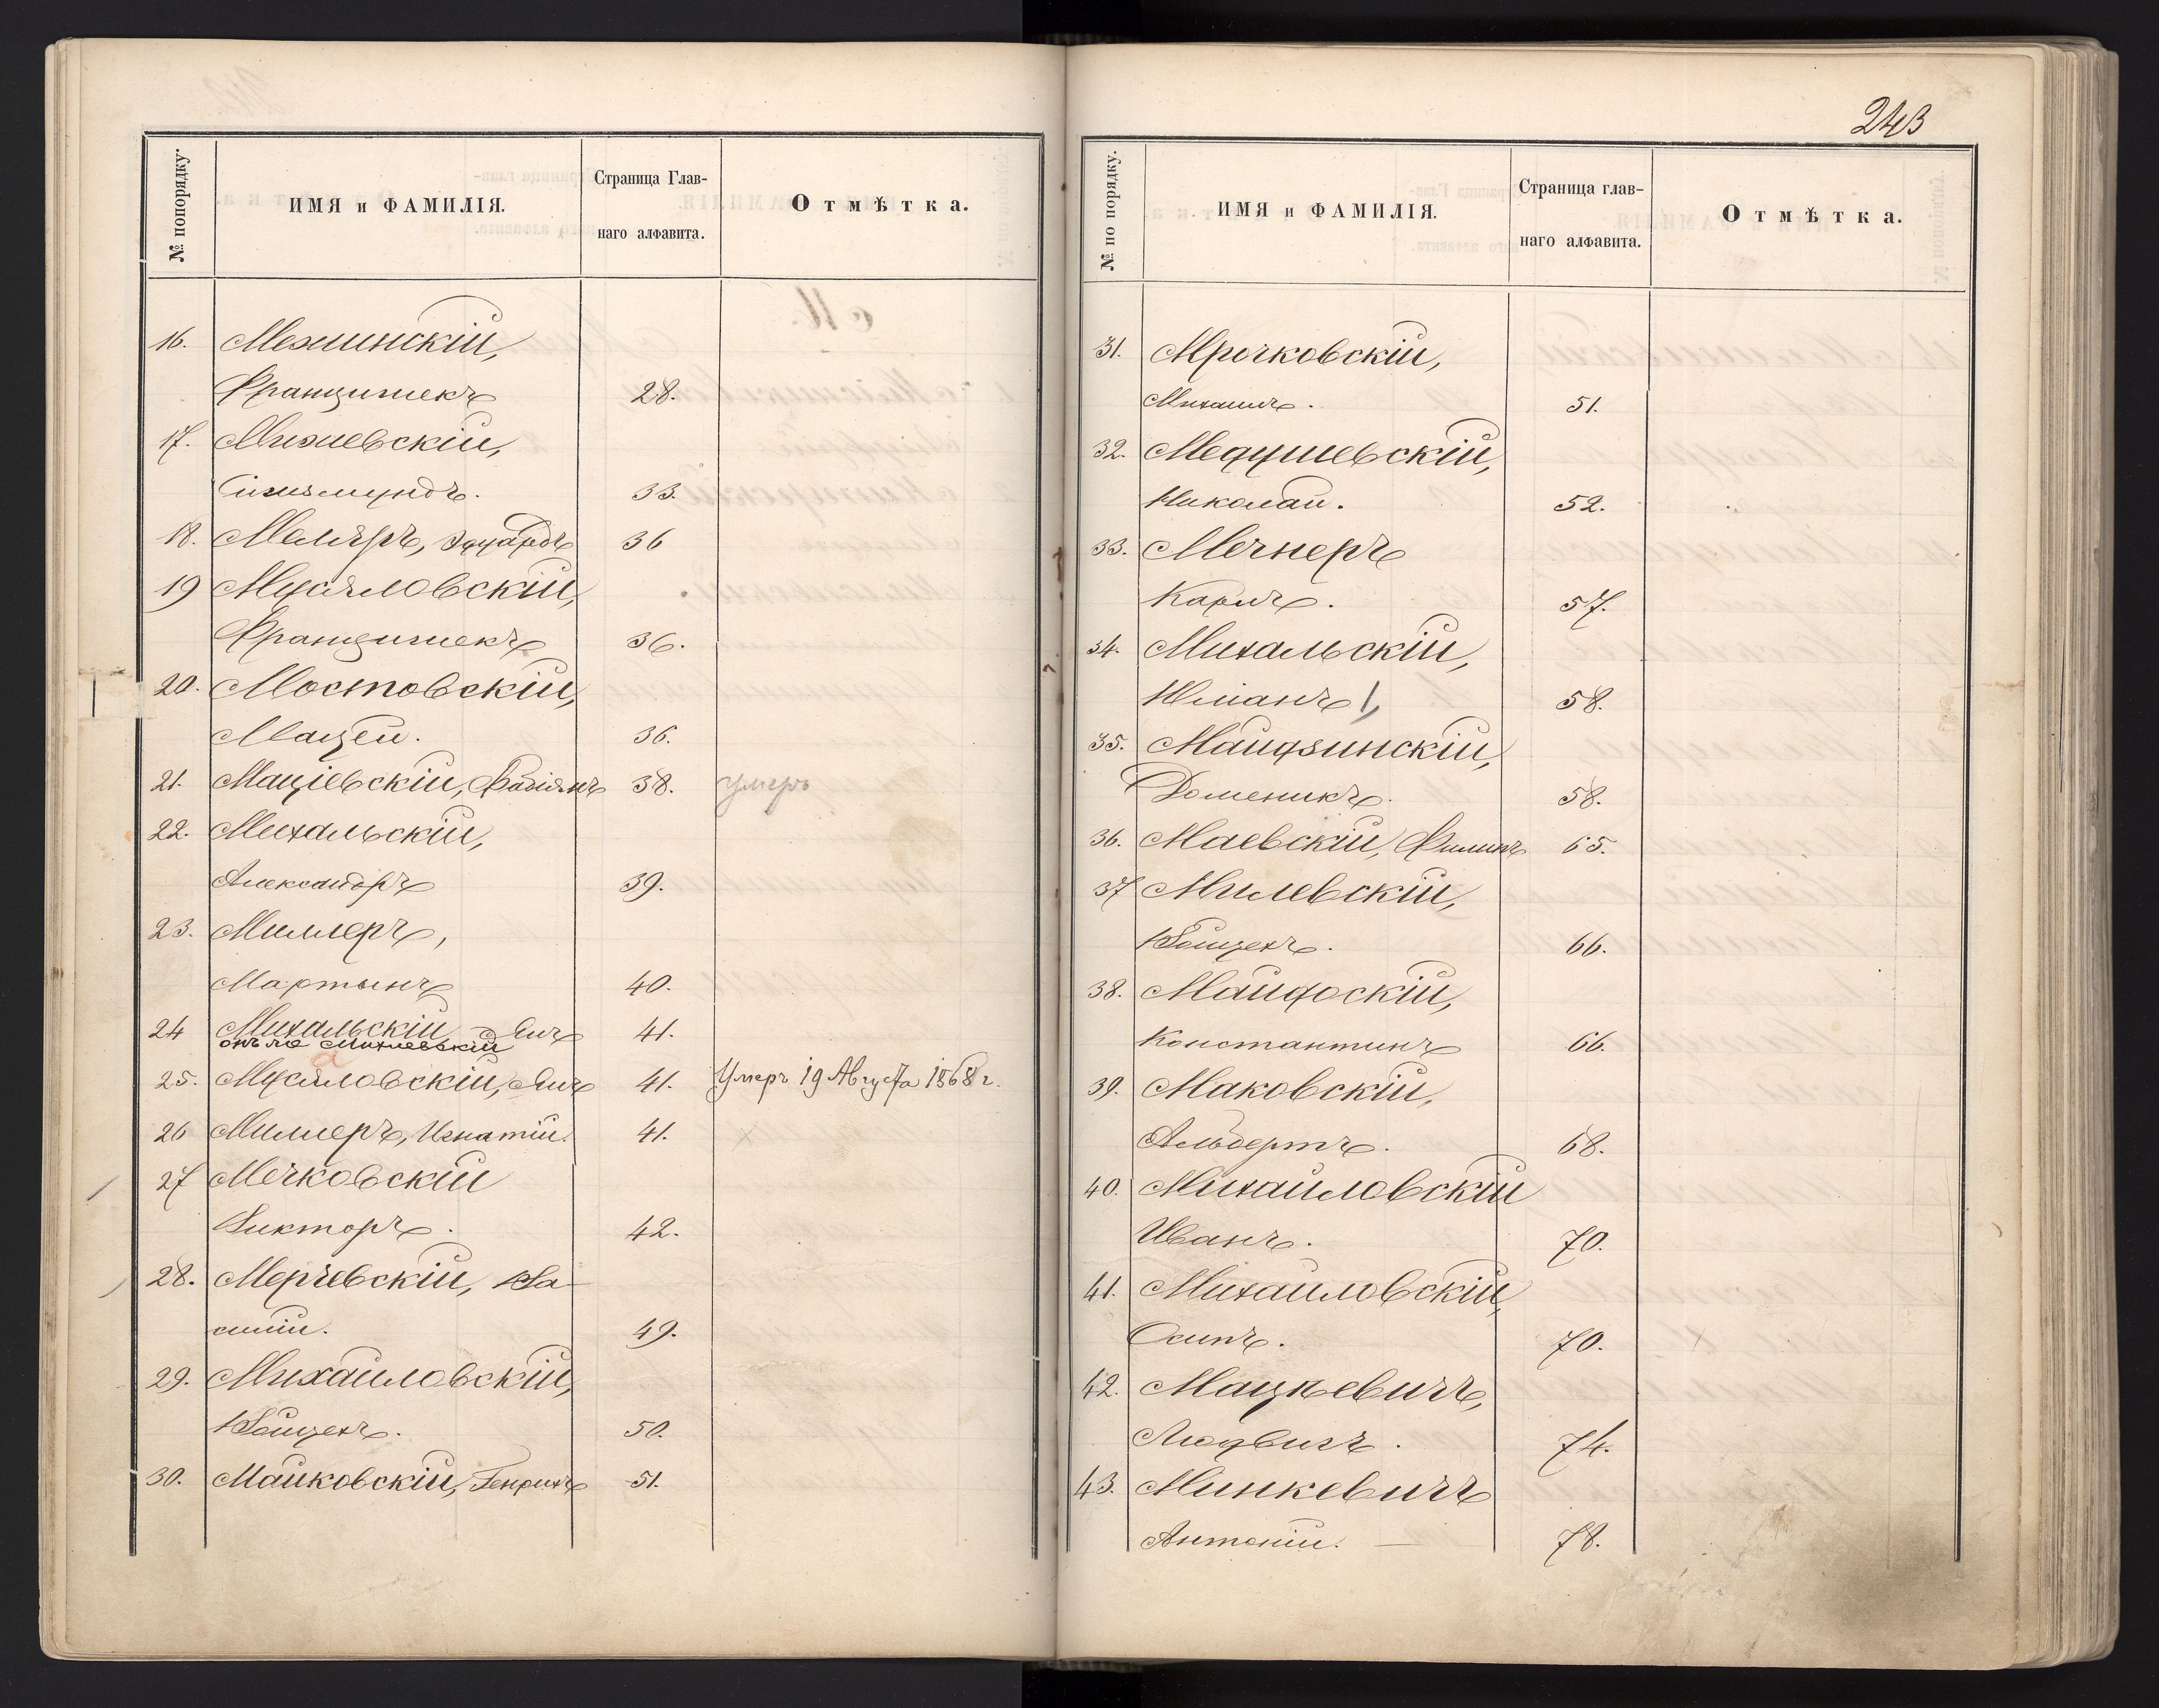 № попорядку.
ИМЯ и ФАМИЛІЯ.
Страница Глав-
наго алфавита.
Отмѣтка.
16. Межинскій,
Францишекъ 28.
17. Мижевскій,
Сигизмундъ. 33.
18. Мелеръ, Эдуардъ 36
19 Мусяловскій,
Францишекъ 36.
20. Мостовскій,
Мацей. 36.
21. Маціевскій, Фабіянъ 38. умеръ
22. Михальскій,
Александръ 39.
23. Миллеръ,
Мартынъ 40.
24 Михальскій Янъ 41.
онъ же Михневскій
25. Мусяловскій, Янъ 41. Умеръ 19 Августа 1868 г.
26 Миллеръ, Игнатій. 41.
27 Мечковскій
Викторъ. 42.
28. Мерчевскій, Ва-
силій. 49.
29. Михайловскій,
Войцехъ. 50.
30. Майковскій, Генрихъ 51.
243
№ по порядку.
ИМЯ и ФАМИЛІЯ.
Страница глав-
наго алфавита.
Отмѣтка.
31. Мрочковскій,
Михаилъ. 51.
32. Медушевскій,
Николай. 52.
33. Мечнеръ
Карлъ. 57.
34. Михальскій,
Юліанъ 58.
35. Майдзинскій,
Доменикъ. 58.
36. Маевскій, Филипъ 65.
37 Милевскій,
Войцехъ. 66.
38. Майдоскій,
Константинъ 66.
39. Маковскій,
Альбертъ. 68.
40. Михайловскій
Иванъ. 70.
41. Михайловскій,
Осипъ. 70.
42. Мацкевичъ,
Людвигъ. 74.
43. Минкевичъ
Антоній. 78.